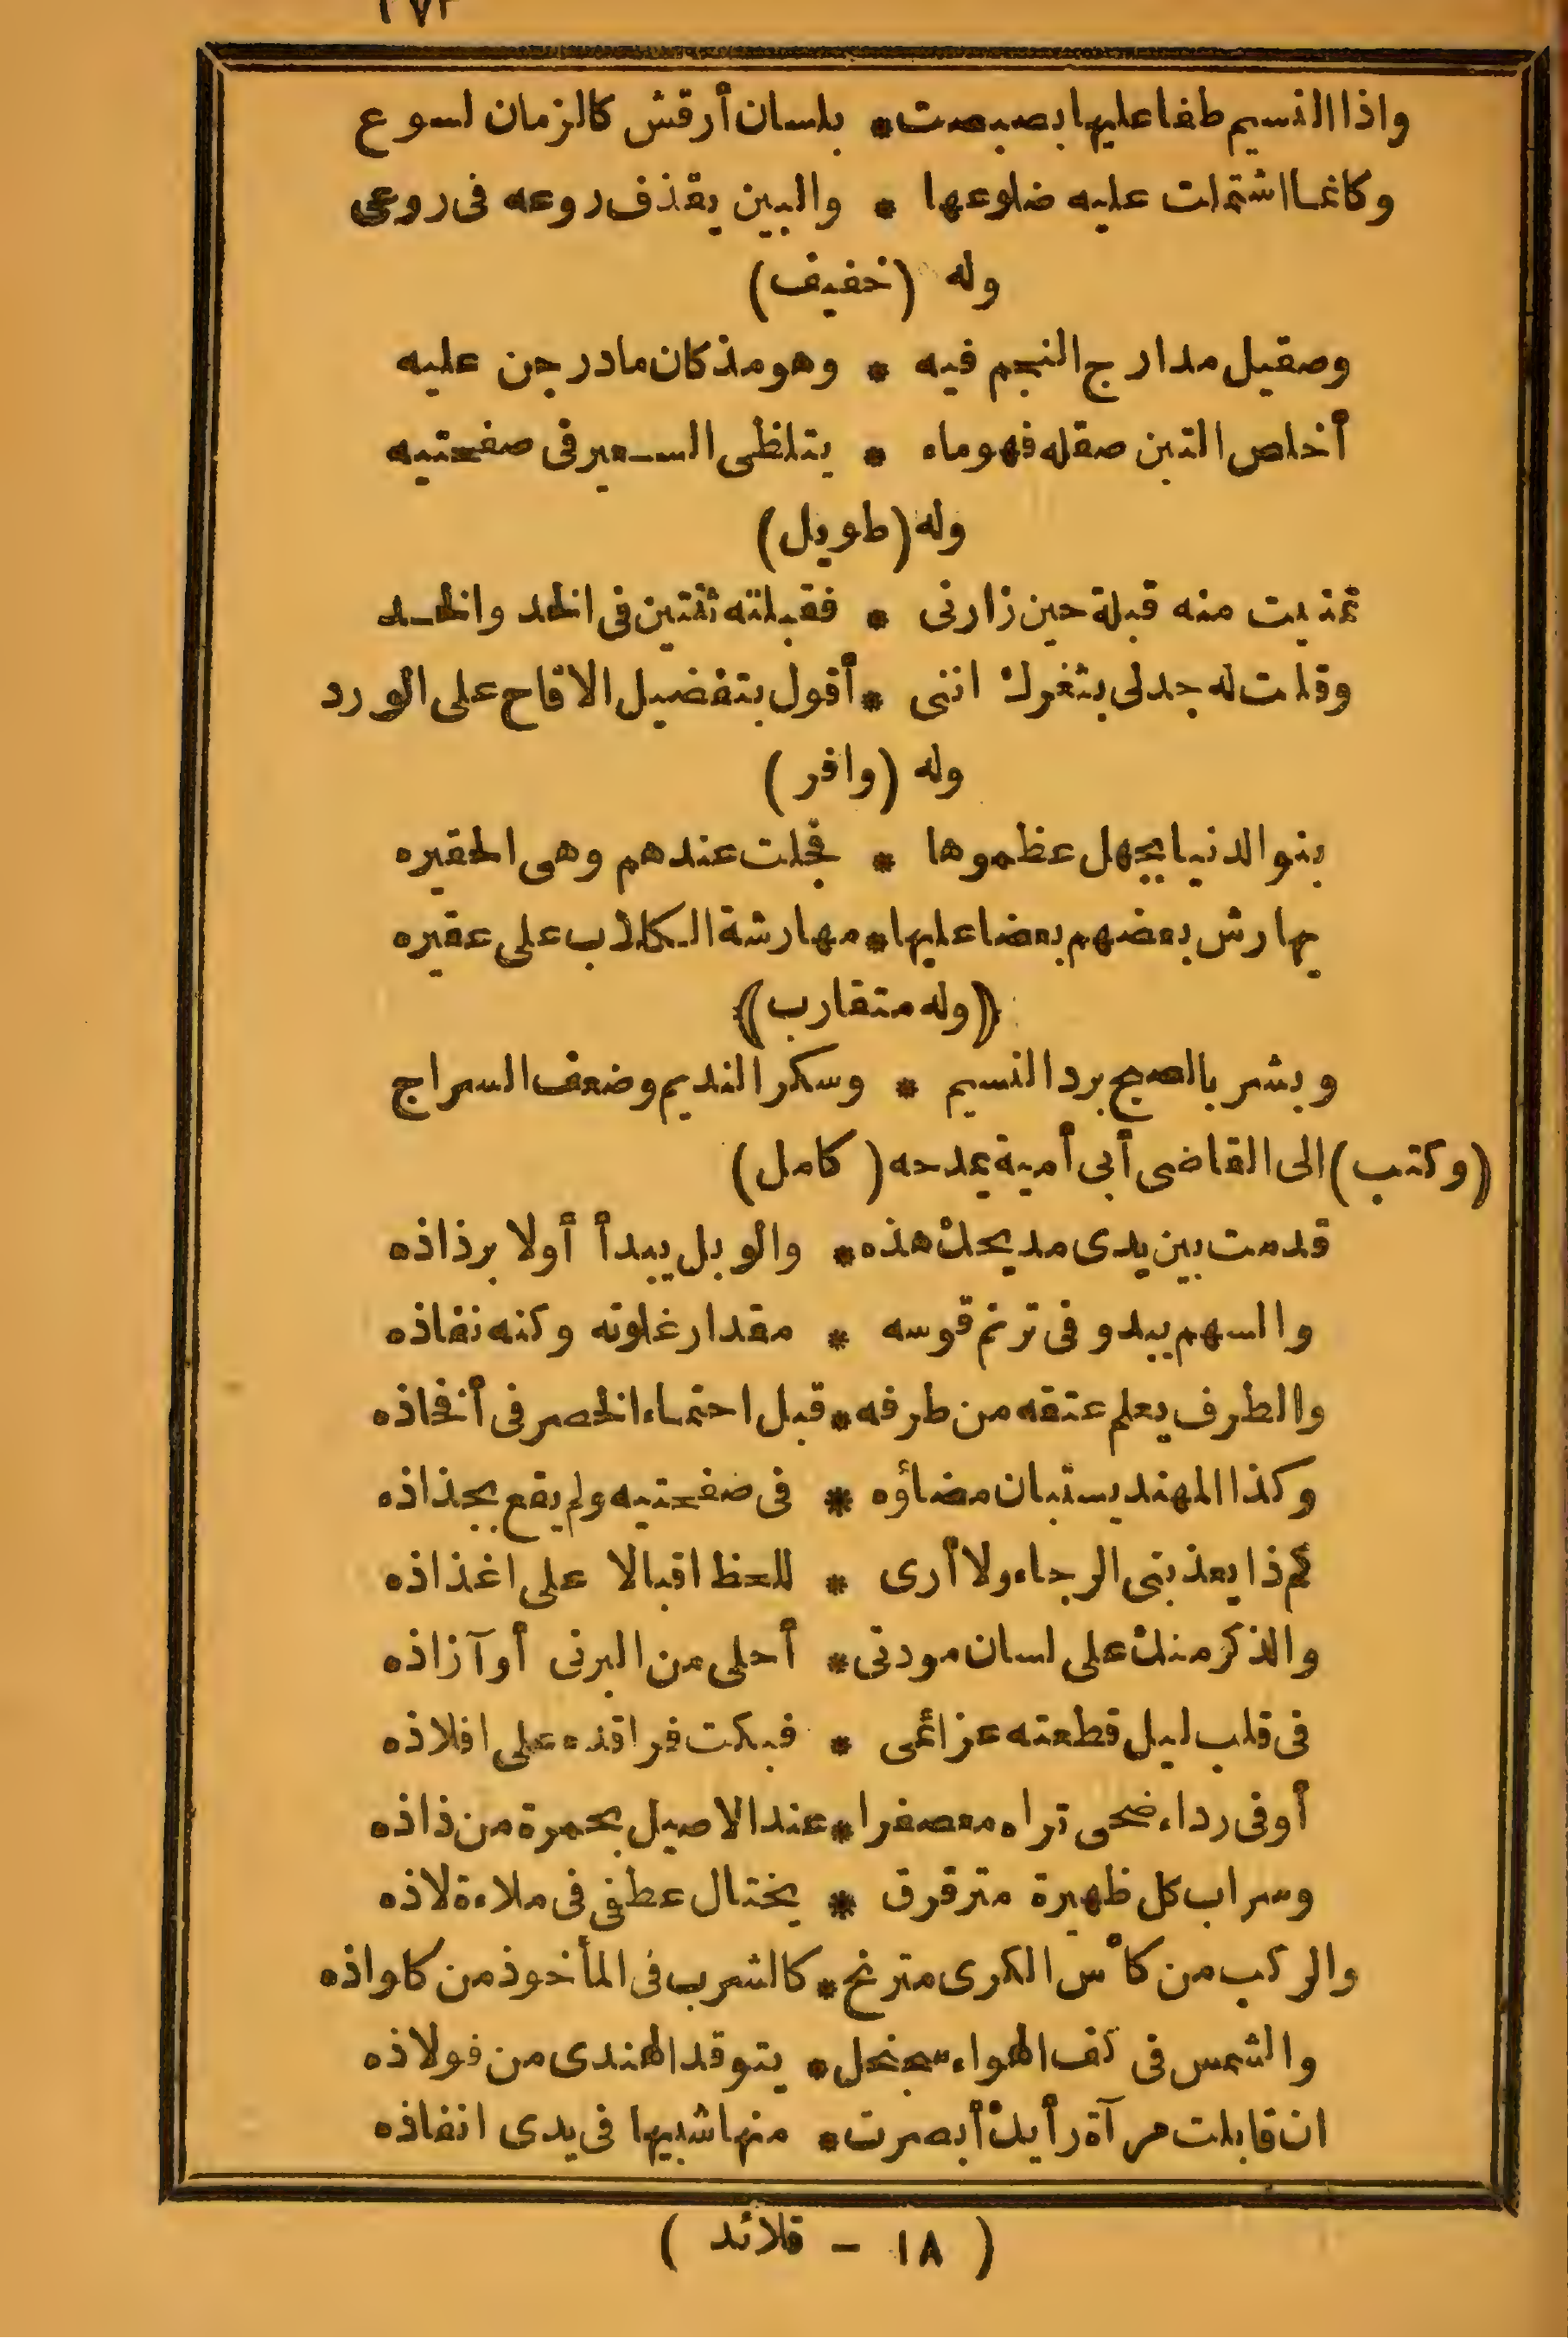 ٢٧٣
واذا النسيم طفا عليها بصبصت * بلسان أرقش كالزمان لسوع
وكانما اشتملت عليه ضلوعها * والبين يقذف روعه فى روعى
وله (خفيف)
وصقيل مدارج النجم فيه * وهو مذ كان مادرجن عليه
أخلص القين صقله فهو ماء * يتلظى السعير فى صفحتيه
وله (طويل)
تمنيت منه قبلة حين زارنى * فقبلته ثنتين فى الخد والخد
وقلت له جدلى بثغرك اننى * أقول بتفضيل الاقاح على الورد
وله (وافر)
بنو الدنيا بجهل عظموها * فجلت عندهم وهى الحقيره
يهارش بعضهم بعضا عليها * مهارشة الكلاب على عقيره
((وله متقارب))
وبشر بالصبح برد النسيم * وسكر النديم وضعف السراج
(وكتب) الى القاضى أبى أمية يمدحه (كامل)
قدمت بين يدى مديحك هذه * والوبل يبدأ أولا برذاذه
والسهم يبدو فى ترنم قوسه * مقدار غلوته وكنه نفاذه
والطرف يعلم عتقه من طرفه * قبل احتماء الخصر فى أفخاذه
وكذا المهند يستبان مضاؤه * فى صفحتيه ولم يقع بجذاذه
كم ذا يعذبنى الرجاء ولا أرى * للحظ اقبالا على اغذاذه
والذكر منك على لسان مودتى * أحلى من البرنى أو آزاذه
فى قلب ليل قطعته عزائمى * فبكت فراقده على افلاذه
أو فى رداء ضحى تراه معصفرا * عند الاصيل بحمرة من ذاذه
وسراب كل ظهيرة مترقرق * يختال عطفى فى ملاءة لاذه
والركب من كأس الكرى مترنح * كالشرب فى المأخوذ من كلواذه
والشمس فى كف الهواء سجنجل * يتوقد الهندى من فولاذه
ان قابلت مرآة رأيك أبصرت * منها شبيها فى يدى انفاذه
(١٨ - قلائد)